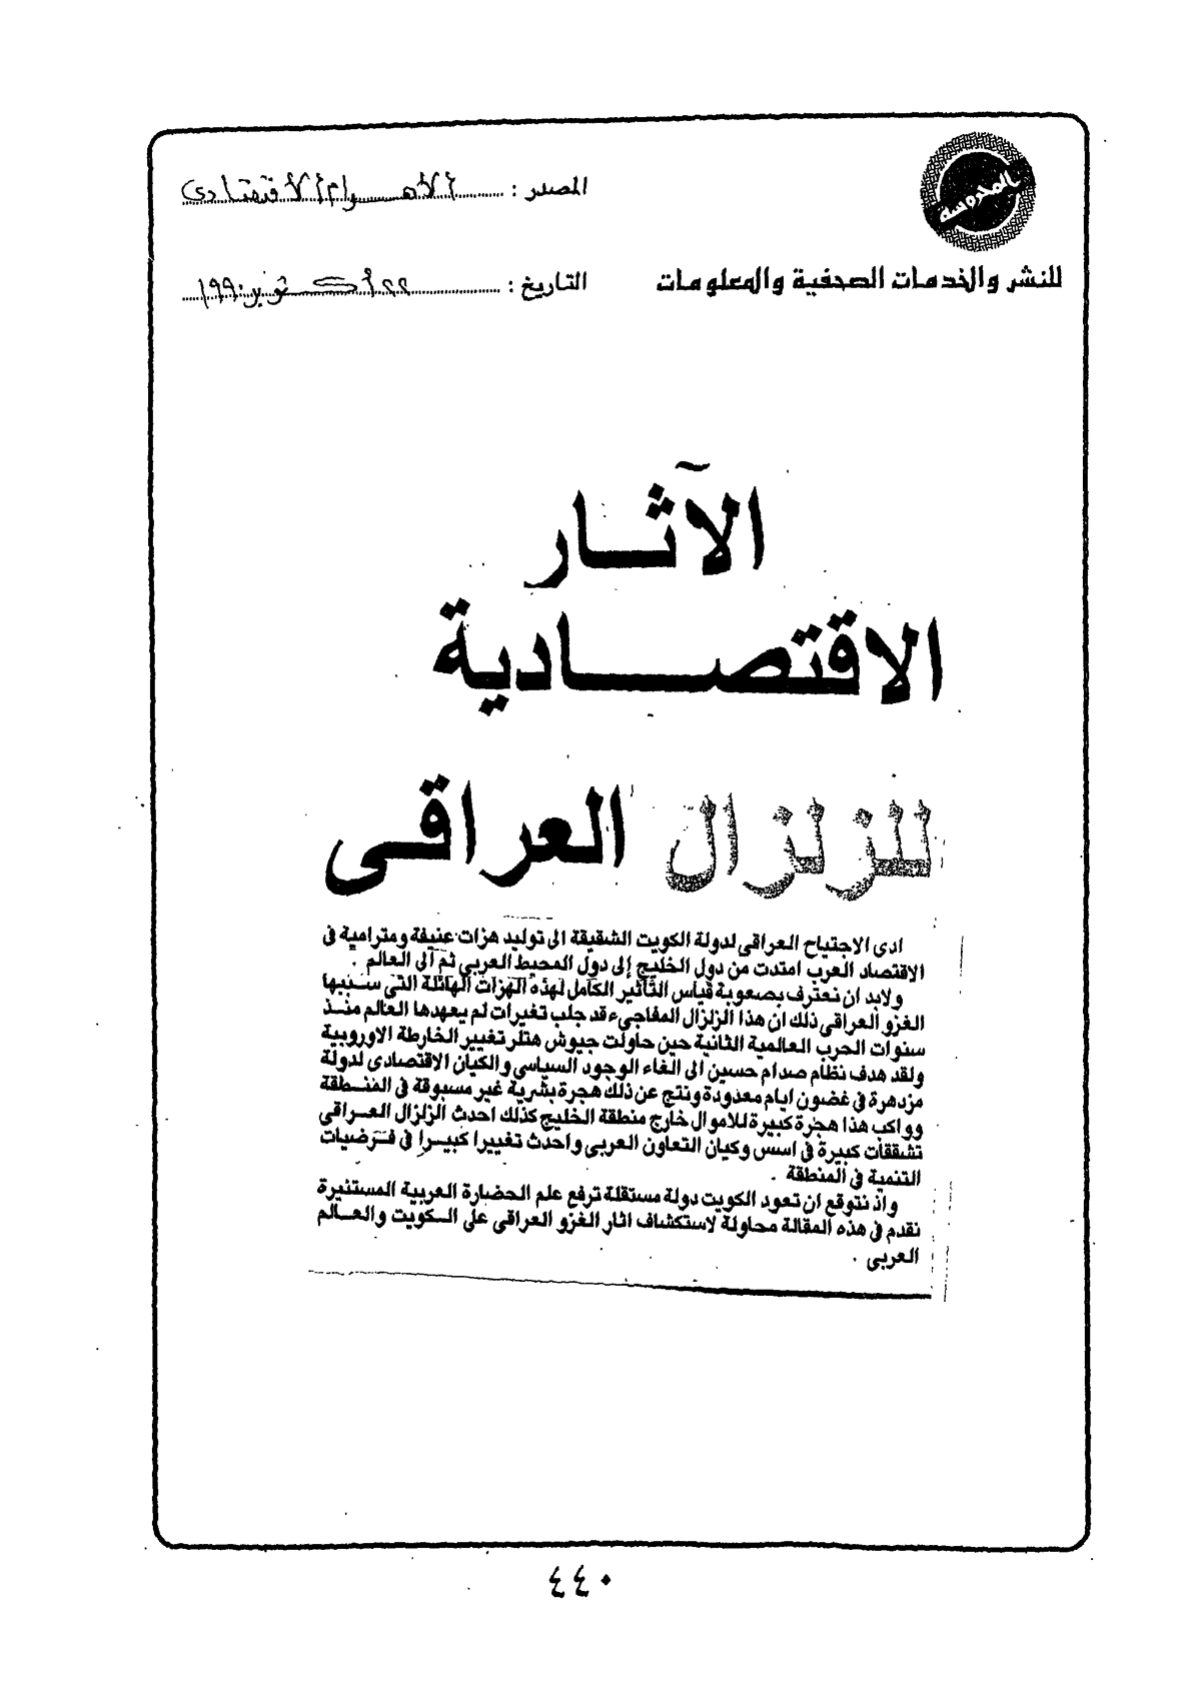 المحروسة
للنشر والخدمات الصحفية والمعلومات
المصدر : الأهرام الاقتصادى
التاريخ : ٢٢ أكتوبر ١٩٩٠
الآثار
الاقتصادية
للزلزال العراقى
ادى الاجتياح العراقى لدولة الكويت الشقيقة الى توليد هزات عنيفة ومترامية فى
الاقتصاد العرب امتدت من دول الخليج إلى دول المحيط العربي ثم الى العالم .
ولابد ان نعترف بصعوبة قياس التأثير الكامل لهذه الهزات الهائلة التى سببها
الغزو العراقى ذلك ان هذا الزلزال المفاجىء قد جلب تغيرات لم يعهدها العالم منذ
سنوات الحرب العالمية الثانية حين حاولت جيوش هتلر تغيير الخارطة الاوروبية
ولقد هدف نظام صدام حسين الى الغاء الوجود السياسي والكيان الاقتصادى لدولة
مزدهرة فى غضون ايام معدودة ونتج عن ذلك هجرة بشرية غير مسبوقة فى المنطقة
وواكب هذا هجرة كبيرة للاموال خارج منطقة الخليج كذلك احدث الزلزال العراقى
تشققات كبيرة فى اسس وكيان التعاون العربى واحدث تغييرا كبيرا فى فرضيات
التنمية فى المنطقة .
واذ نتوقع ان تعود الكويت دولة مستقلة ترفع علم الحضارة العربية المستنيرة
نقدم فى هذه المقالة محاولة لاستكشاف اثار الغزو العراقى على الكويت والعالم
العربي .
٤٤٠